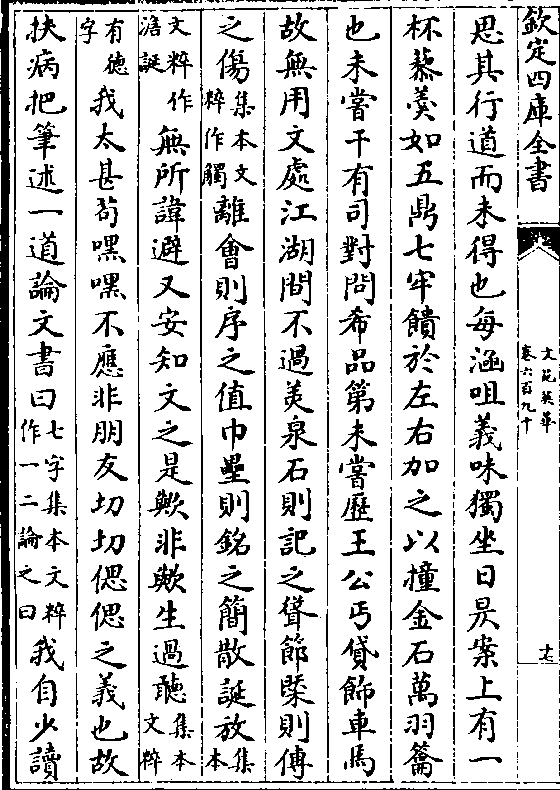 欽定四庫全書
文苑英華
卷六百九十
十七
思其行道而未得也每涵咀義味獨坐日昃案上有一
杯藜羹如五鼎七牢饋於左右加之以撞金石萬羽籥
也未嘗干有司對問希品第未嘗歷王公丐貸飾車馬
故無用文處江湖間不過美泉石則記之聳節槩則傳
之傷集本文粹作觸離會則序之值巾罍則銘之簡散誕放集本
文粹作澹誕無所諱避又安知文之是歟非歟生過聽集本文粹
有德字我太甚苟嘿嘿不應非朋友切切偲偲之義也故
扶病把筆述一道論文書曰七字集本文粹作一二論之曰我自少讀